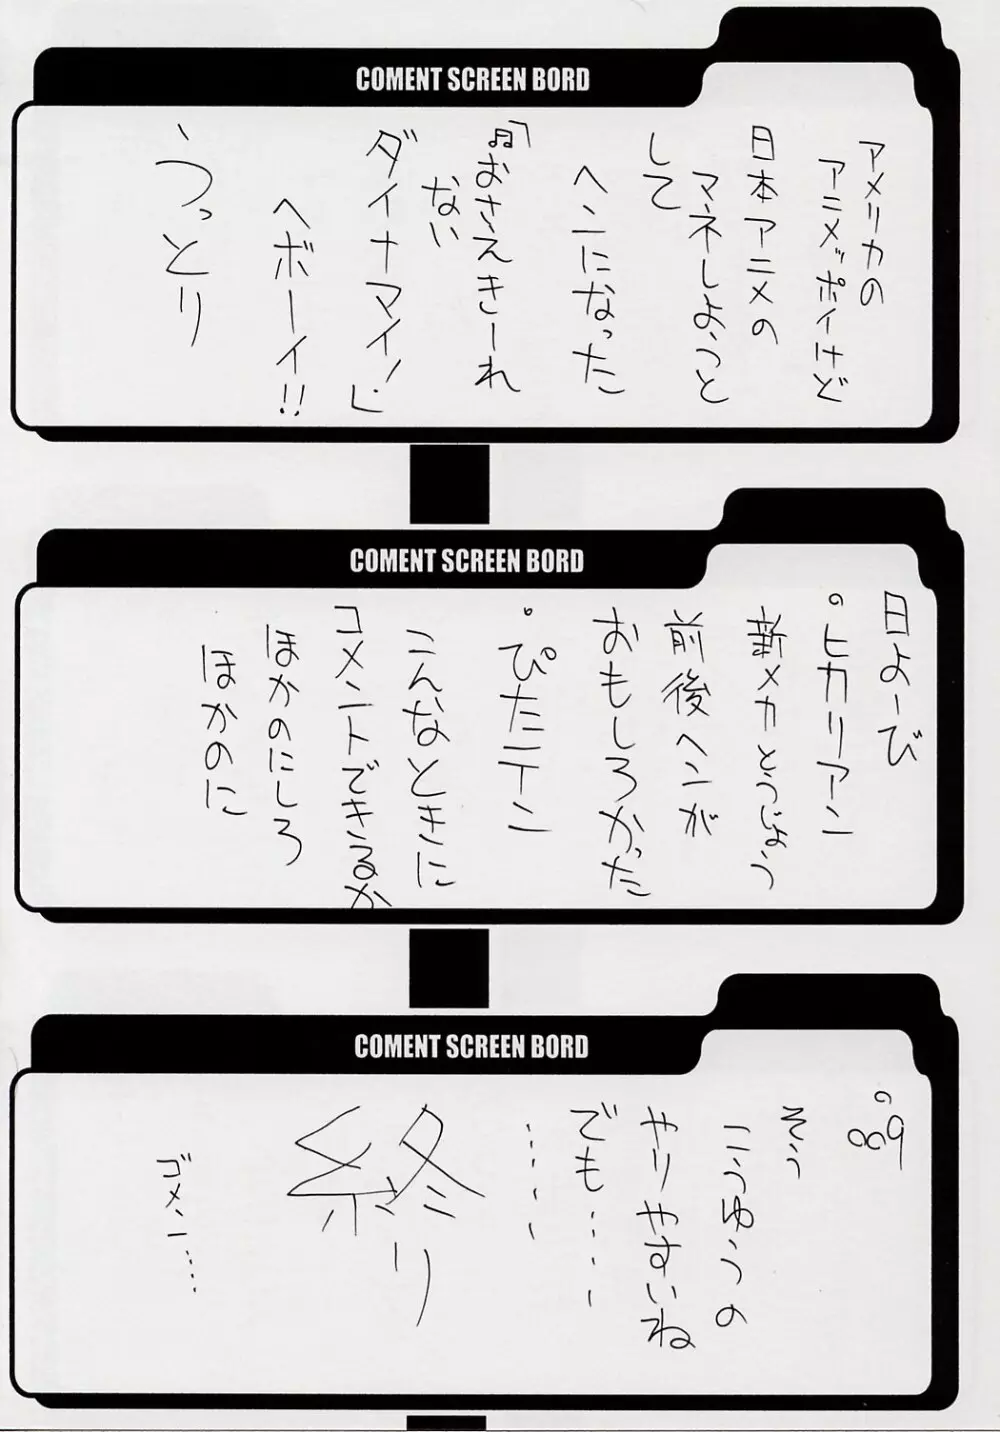 COMENT SCREEN BORD
アメリカの
アニメッポイけど
日本アニメの
マネしようと
して
ヘンになった
「♬おさえきーれ
ない
ダイナマイ!」
ヘボーイ!!
、うっとり
COMENT SCREEN BORD
日よーび
。ヒカリアン
新メカとうじょう
前後ヘンが
おもしろかった
。ぴたテン
こんなときに
コメントできるか
ほかのにしろ
ほかのに
COMENT SCREEN BORD
。889
そう
こうゆうの
やりやすいね
でも……
……
終り
ゴメン……